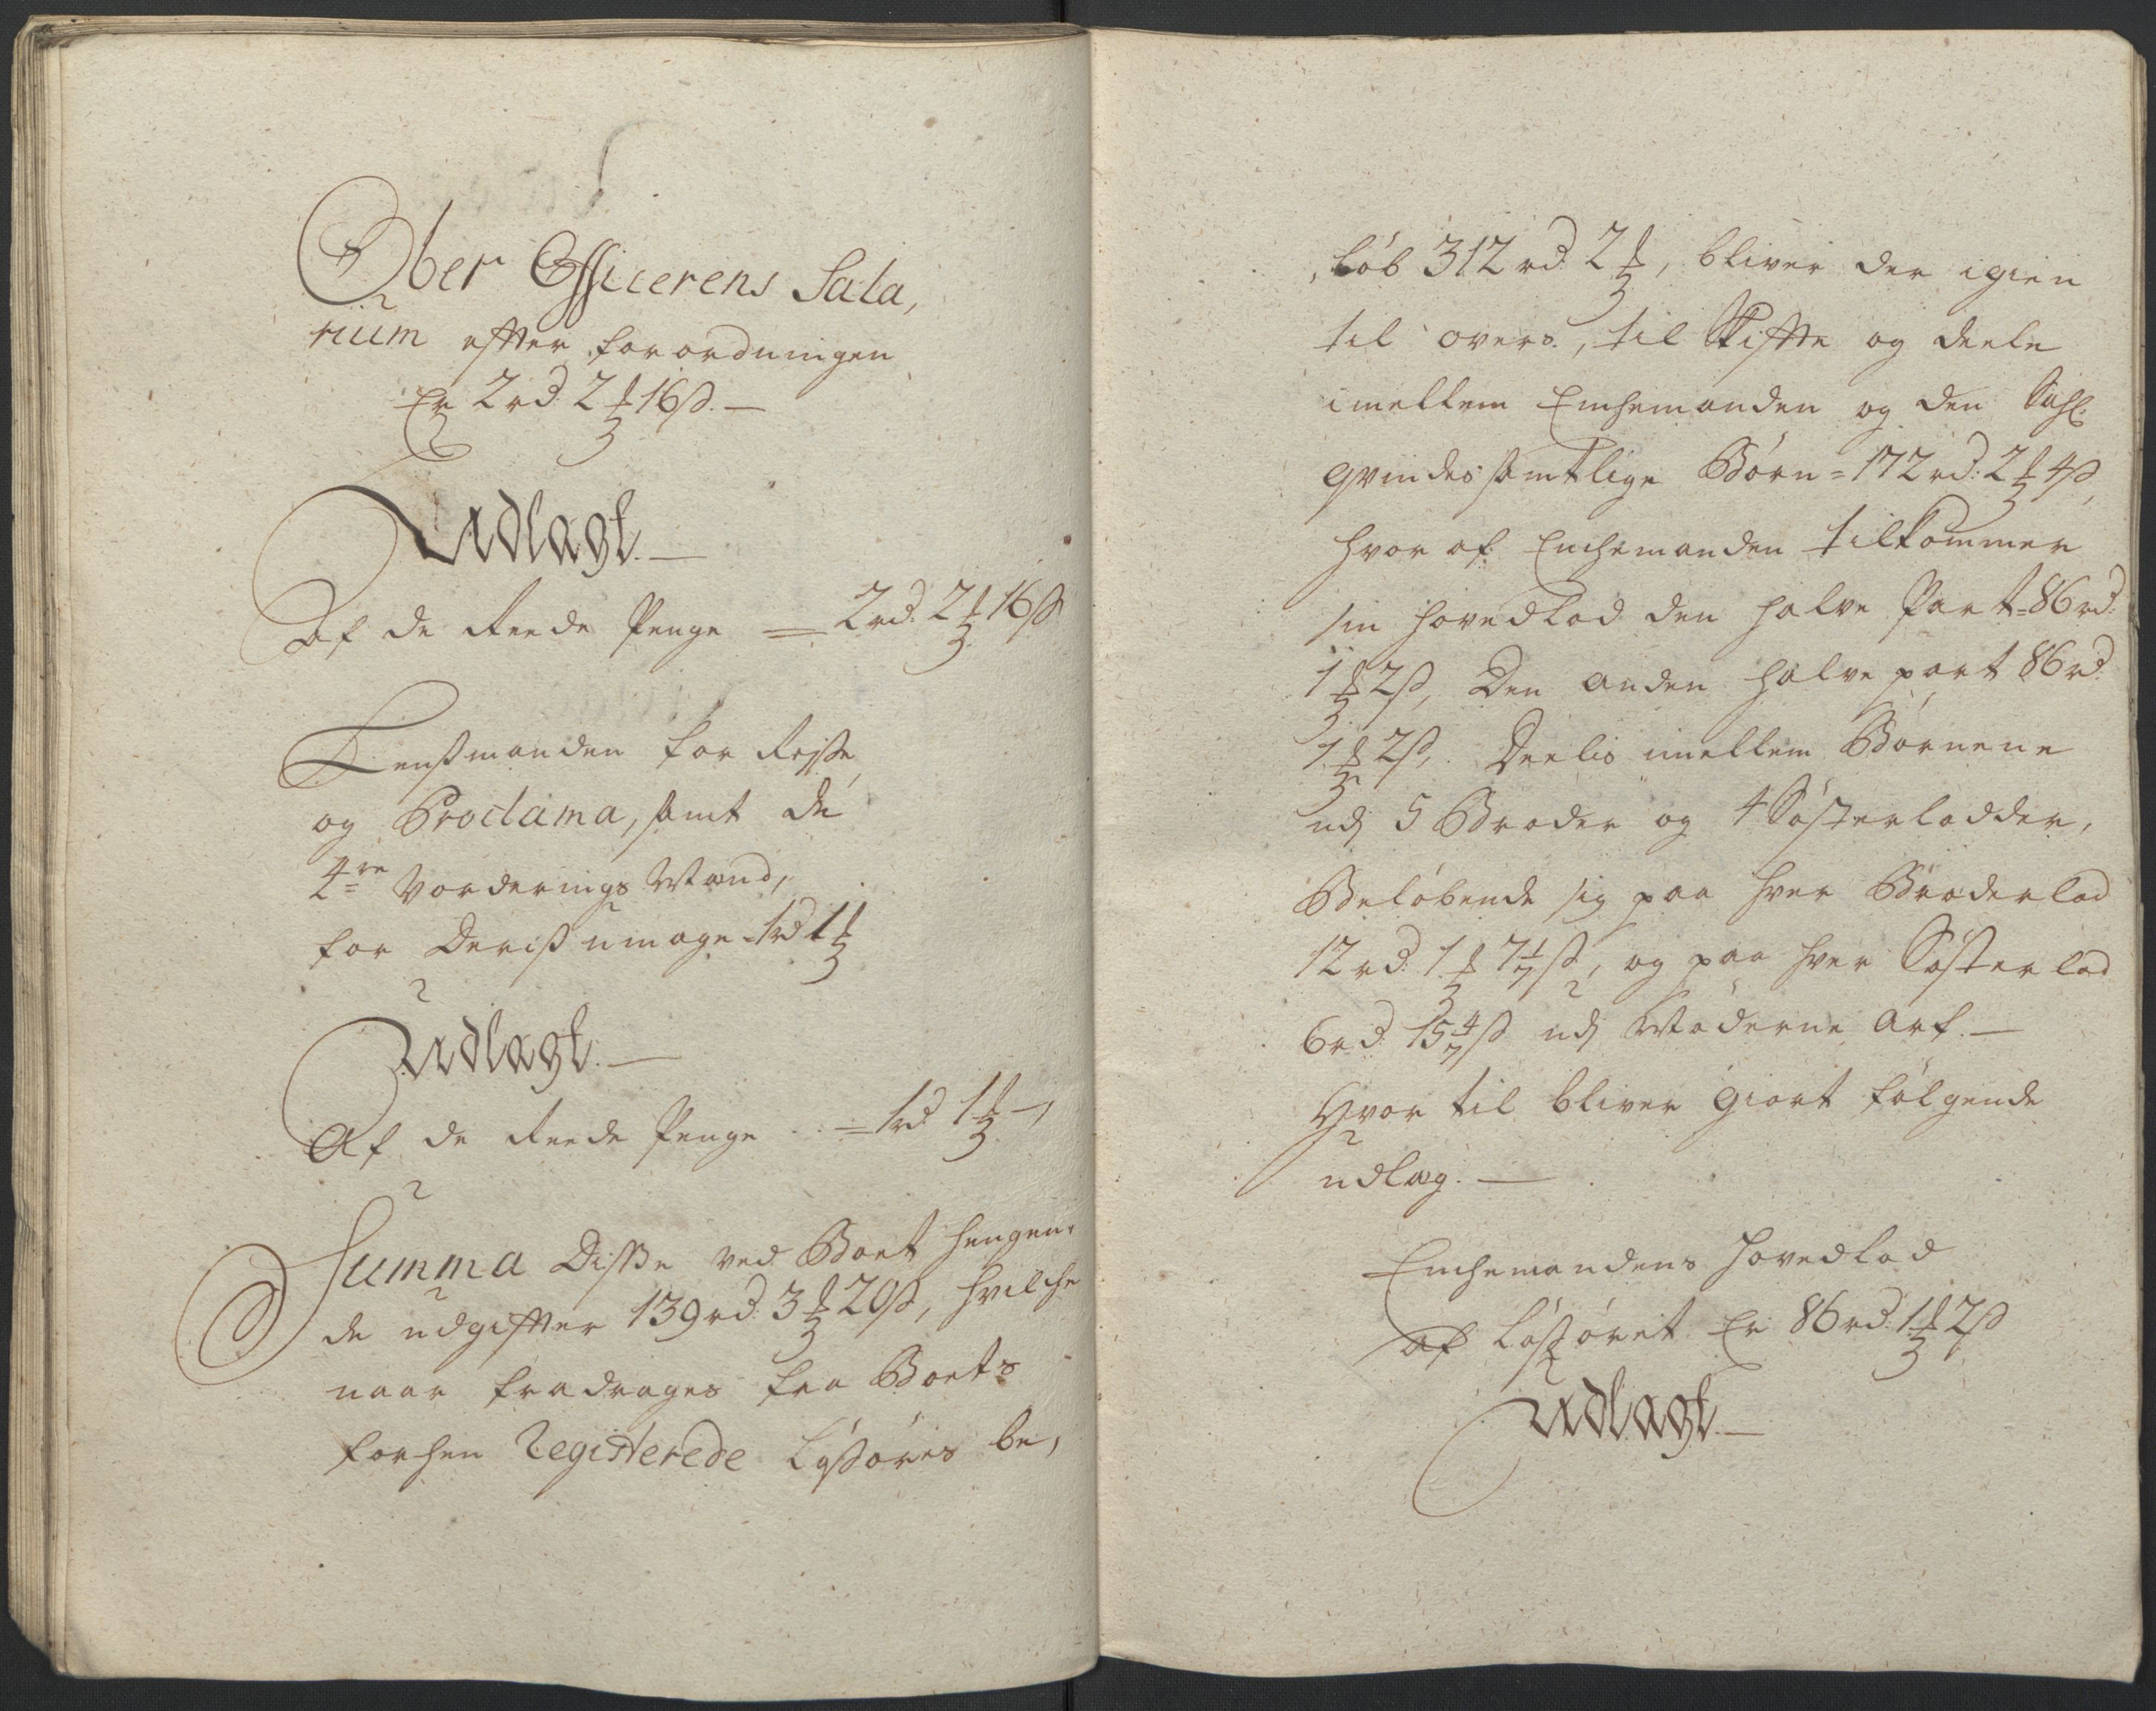 Ober Officerens Sala,
rium efter forordningen
Er 2 rd 2 ₰ 16 ß. —
Udlagt. —
Af de Reede Penge = 2 rd. 2 ₰ 16 ß
Lenßmanden for Rejße
og Proclama, samt de
4re Vorderings Mænd,
for Deris umage = 1 rd 1 ₰
Udlagt. —
Af de Reede Penge = 1 rd 1 ₰ —,
Summa Disse ved Boet hengen,
de udgifter 139 rd. 3 ₰ 20 ß, hvilche
naar fradrages fra Boets
forhen Registerede Løsøres be,
,løb 312 rd. 2 ₰, bliver der igien
til overs., til Skifte og deele
imellem Enchemanden og den Sahl.
qvindes samtlige Børn = 172 rd. 2 ₰ 4 ß,
hvor af Enchemanden tilkommer
sin hovedlod den halve Part = 86 rd.
1 ₰ 2 ß, Den anden halve part 86 rd.
1 ₰ 2 ß, Deelis imellem Børnene
udj 5 Broder og 4 Søsterlodder,
Beløbende sig paa hver Broderlod
12 rd. 1 ₰ 7 1/7 ß, og paa hver Søsterlod
6 rd. 15 4/7 ß udj Møderne Arf. —
Hvor til bliver Giort følgende
udlæg. —
Enchemandens hovedlod
af Løsøret Er 86 rd. 1 ₰ 2 ß
Udlagt. —